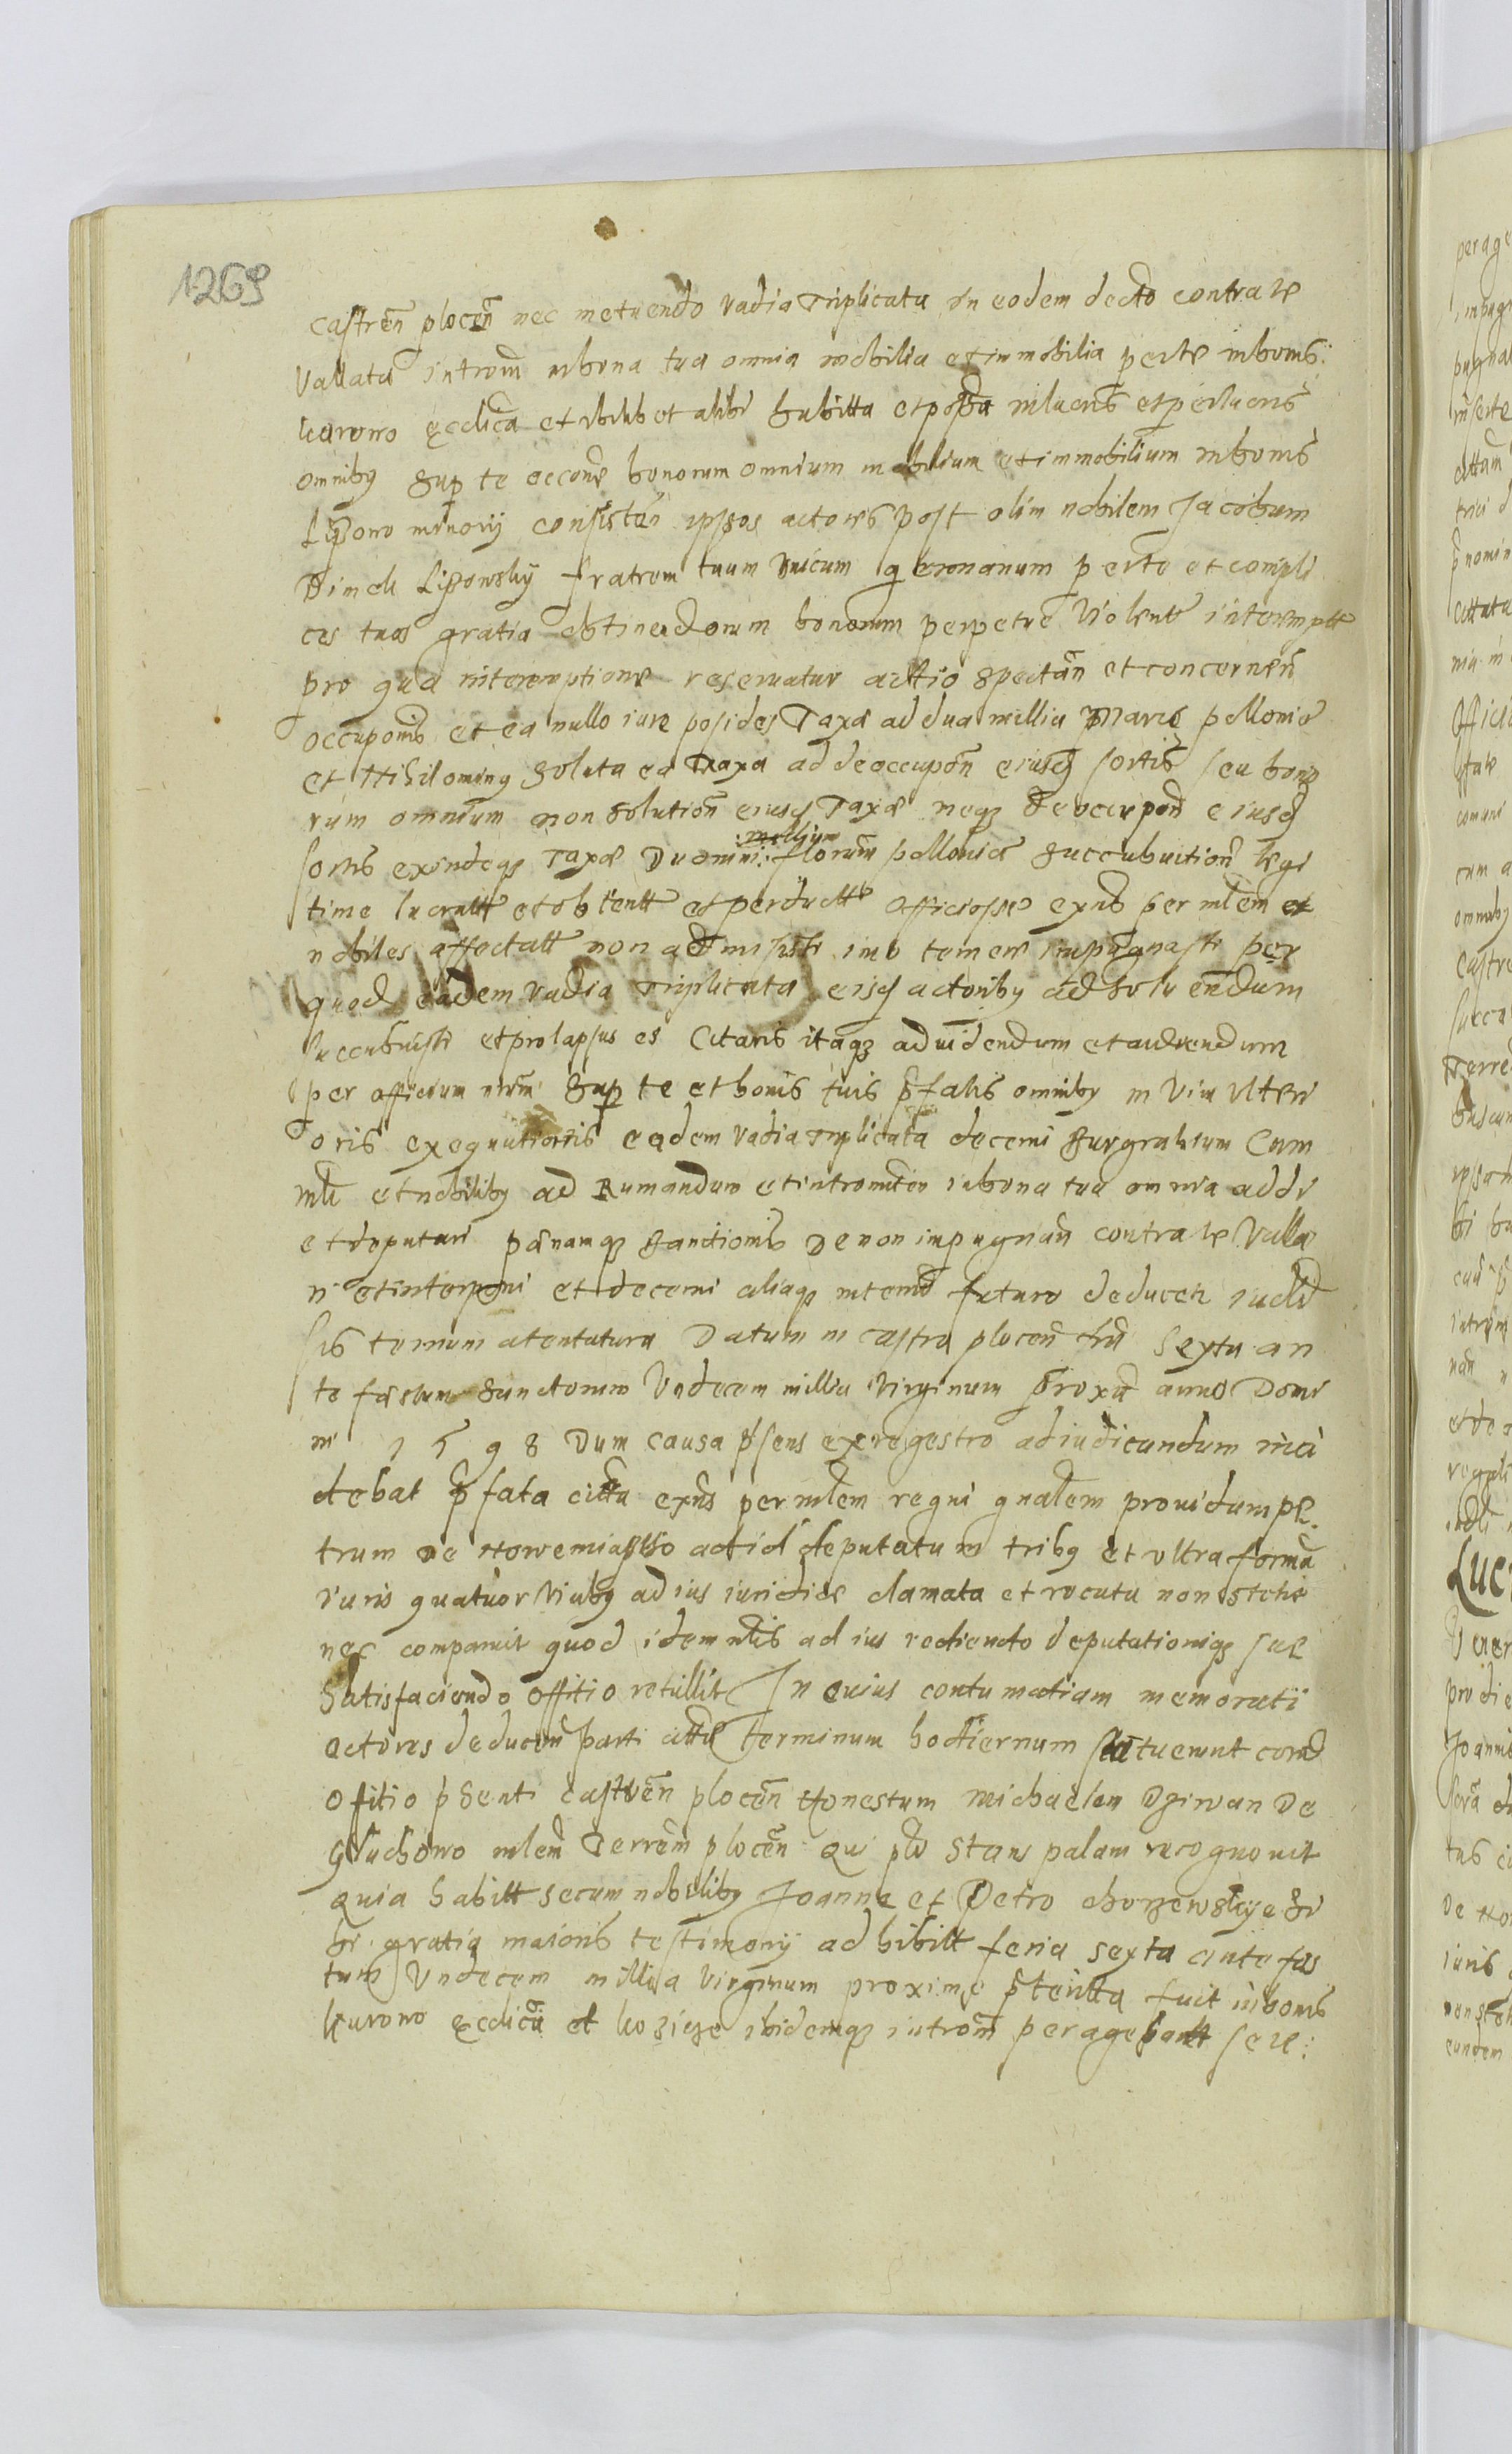 1269
castren plocen nec metuendo vadia triplicata in eodem decto contra te
vallata introm in bona tua omnia mobilia et immobilia per te in bonis
kurowo ecclica et ubilibet alibi habitta et possa in lacris et per lacris
omnibq sup te occone bonorum omnium mobilium et immobilium in bonis
Liszowo minorij consisten ipsos actores post olim nobilem Jacobum
Liszowskij fratrem tuum unicum germanum per te et compli
ces tuos gratia obtinendorum bonorum perpetue violente interempte
pro qua interemptione reservatur actio spectan et concernen
occuponis et ea nullo iure posides Taxa ad dua millia Marc pollonic
et Nihilominq soluta ea Taxa ad deoccupon eiusd sortis seu bono
rum omnium non solution eiusd Taxæ neqz deoccupon eiusd
millium
sortis exindeqz Taxæ Duomni florum pollonice succubuition legi
time lucratt et obtentt et perductt officiosse exns per mlem et
nobiles affectatt non admisisti imo temere impugnasti per
quod eadem vadia triplicata eisd actoribq ad soluendum
succubuisti et prolapsus es Citaris itaqz ad videndum et audiendum
per officium nrum sup te et bonis tuis pfatis omnibq in vim ulteri
oris exequutionis eadem vadia triplicata decerni Burgrabium Cum
mli et nobilibq ad Rumandum et intromitten in bona tua omnia addi
et deputari pænamqz sanctionis de non impugnan contra te valla
ri et interponi et decerni aliaqz in termo futuro deducen iudlr
sis terminum atentatura Datum in castro plocen fria sexta an
te fæstum sanctorum Undecem millia Virginum proxia anno Domi
ni 1598 Dum causa psens ex regestro ad iudicandum inci
debat pfata citta exns per mlem regni gnalem providum pe
trum de Nowemiasto ad id deputatum tribq et ultra forma
iuris quatuor vicibq ad ius iuridice clamata et vocata non stetit
nec comparuit quod idem mlis ad ius rediendo deputationiqz sue
satisfaciendo offitio retullit In cuius contumatiam memorati
actores deducen parti citte terminum hodiernum statuerunt coram
ofitio psenti castren plocen Honestum Michaelem Dziwan de
Gluchowo mlem Terrem plocen Qui ptr stans palam recognouit
quia habitt secum nobilibq Joanne et Petro chorzewskye si
bi gratia maioris testimonij adhibitt feria sexta ante fes
tum Undecem millia virginum proxime pteritta fuit in bonis
kurowo ecclica et kozicze ibidemqz introm peragebant seu: